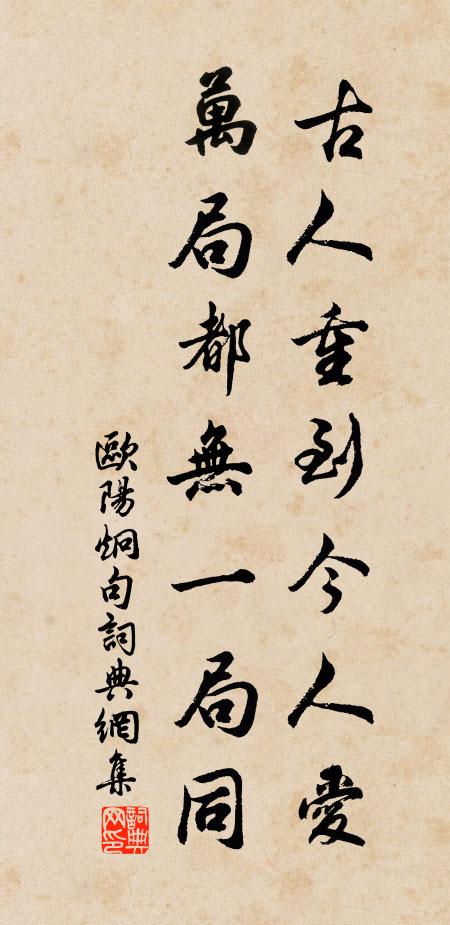 古人重到今人愛
萬局都無一局同
歐陽炯句詞典網集
詞典網印